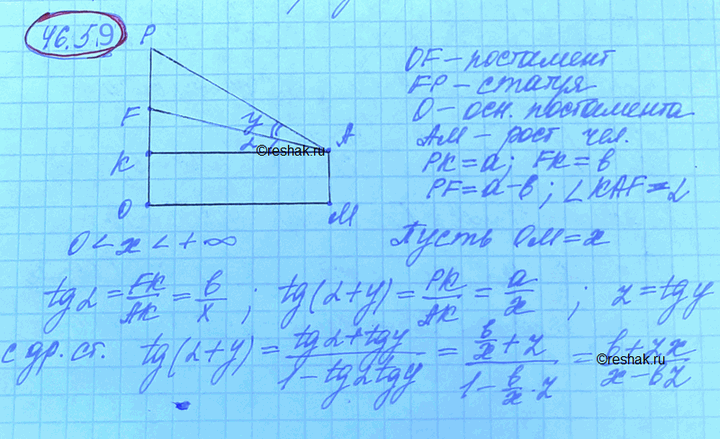 46.59
P
F
y
A
α
©reshak.ru
K
O
M
OF – постамент
FP – статуя
O – осн. постамента
AM – рост чел.
PK = a; FK = b
PF = a – b; ∠KAF = α
0 < x < +∞
Пусть OM = x
tg α = FK/AK = b/x; tg(α+y) = PK/AK = a/x; z = tg y
с др. ст. tg(α+y) = (tg α + tg y)/(1 – tg α tg y) = (b/x + z)/(1 – b/x · z) = (b + zx)/(x – bz)
©reshak.ru